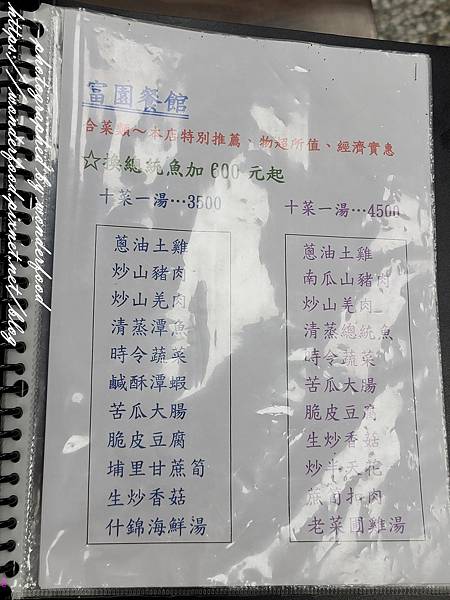 photograph by wonderfood
https://wonderfood.pixnet.net/blog
富園餐館
合菜類～本店特別推薦、物超所值、經濟實惠
☆換總統魚加 600 元起
十菜一湯…3500
蔥油土雞
炒山豬肉
炒山羌肉
清蒸潭魚
時令蔬菜
鹹酥潭蝦
苦瓜大腸
脆皮豆腐
埔里甘蔗筍
生炒香菇
什錦海鮮湯
十菜一湯…4500
蔥油土雞
南瓜山豬肉
炒山羌肉
清蒸總統魚
時令蔬菜
苦瓜大腸
脆皮豆腐
生炒香菇
炒半天花
蔗筍扣肉
老菜圃雞湯